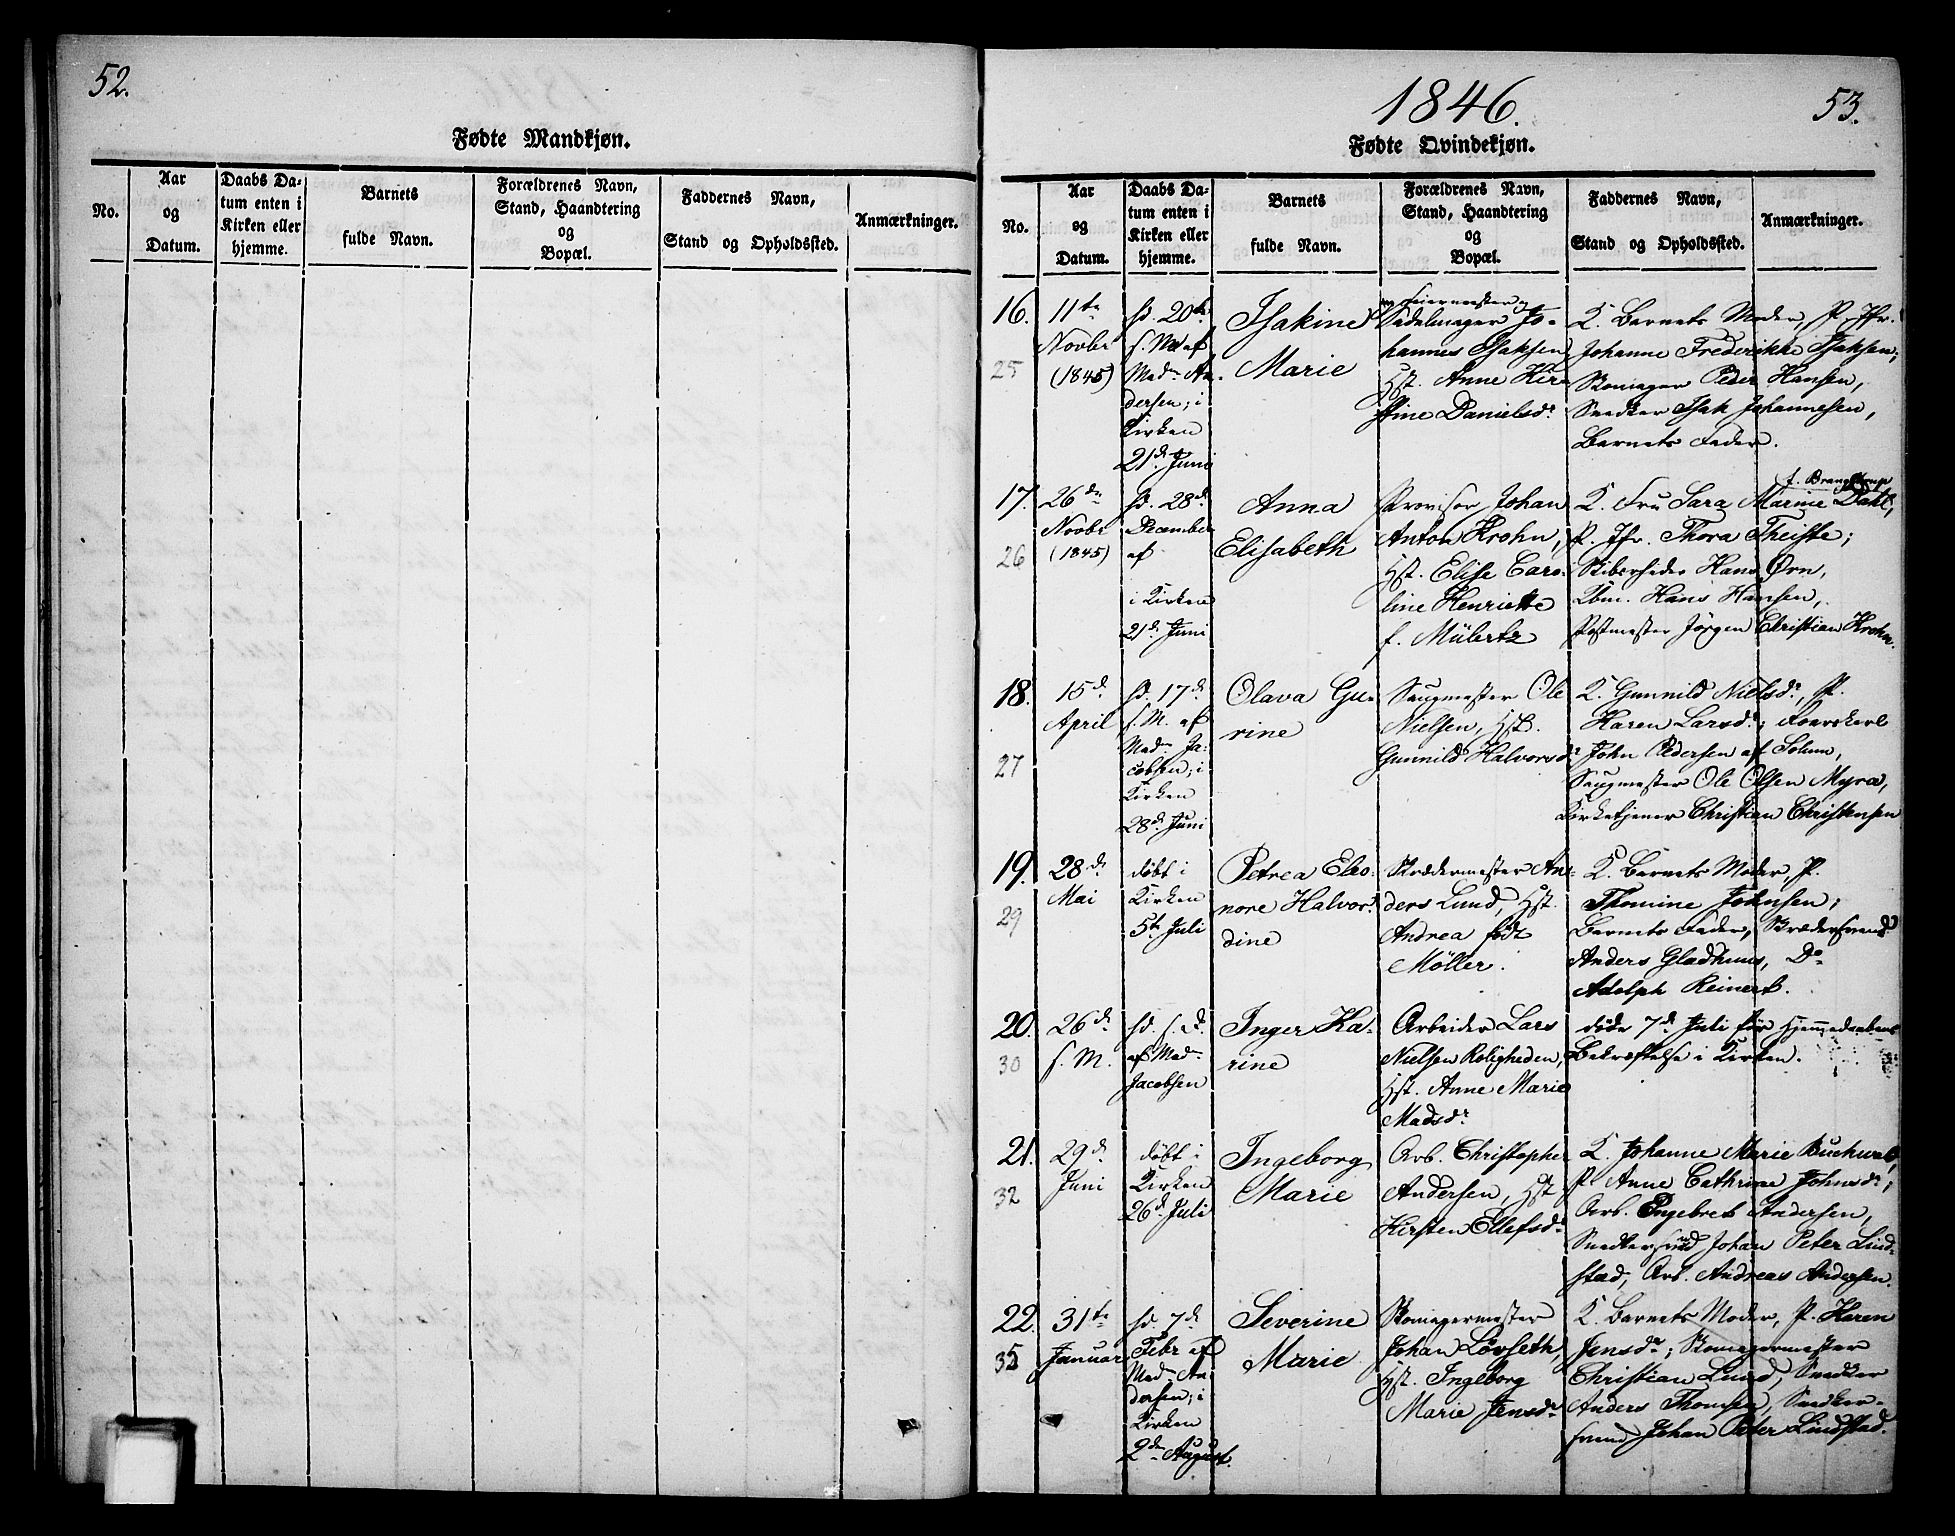 52.
Fødte Mandkjøn.
No.
Aar
og
Datum.
Daabs Da-
tum enten i
Kirken eller
hjemme.
Barnets
fulde Navn.
Forældrenes Navn,
Stand, Haandtering
og
Bopæl.
Faddernes Navn,
Stand og Opholdssted.
Anmærkninger.
1846.
53.
Fødte Qvindekjøn.
No.
Aar
og
Datum.
Daabs Da-
tum enten i
Kirken eller
hjemme.
Barnets
fulde Navn.
Forældrenes Navn,
Stand, Haandtering
og
Bopæl.
Faddernes Navn,
Stand og Opholdssted.
Anmærkninger.
16.
25
11te
Novbr
(1845)
hd. 20de
s. M. af
Mad. An-
dersen; i
Kirken
21d. Juni
Isakine
Marie
Feiermester og
Sadelmager Jo-
hannes Isaksen,
Hst. Anne Kir-
stine Danielsdr
K. Barnets Moder, P. Jfr.
Johanne Frederikke Isaksen;
Skomager Peder Hansen,
Snedker Isak Johannesen,
Barnets Fader.
17.
26
26de
Novbr
(1845)
hd. 28d.
December
af
i Kirken
21d. Juni
Anna
Elisabeth
Provisor Johan
Anton Krohn,
Hst. Elise Caro-
line Henriette
f. Mübertz
f. Brangstrup
K. Fru Sara Marine Dahl,
P. Jfr. Thora Theiste;
Skibsrheder Hans Ørn,
Kbm. Hans Hansen,
Postmester Jörgen Christian Krohn.
18.
27
15d.
April
hd. 17d.
s. M. af
Mad. Ja-
cobsen; i
Kirken
28d. Juni
Olava Gu-
rine
Saugmester Ole
Nielsen, Hst.
Gunnild Halvorsdr
K. Gunnild Nielsdr, P.
Karen Larsdr;
John Pedersen af Solum,
Saugmester Ole Olsen Myra,
Kirketjener Christian Christensen
19.
29
28d.
Mai
döbt i
Kirken
5te Juli
Petrea Eleo-
nore Halvor-
dine
Skrædermester An-
ders Lund, Hst.
Andrea født
Möller.
K. Barnets Moder, P.
Thomine Johnsen;
Barnets Fader, Skrædersvend
Anders Gladhuus, Do
Adolph Reinert.
20.
30
26d.
s. M.
hd. s. D.
af Mad.
Jacobsen
Inger Ka-
rine
Arbeider Lars
Nielsen Roligheden,
Hst. Anne Marie
Madsdr
döde 7d. Juli før Hjemmedaabens
Bekræftelse i Kirken.
21.
32
29d.
Juni
döbt i
Kirken
26d. Juli
Ingeborg
Marie
Arb. Christopher
Andersen, Hst
Kirsten Ellefsdr
K. Johanne Marie
P. Anne Cathrine Johnsdr;
Arb. Engebret Andersen,
Snedkersvend Johan Peter Lind-
stad, Arb. Andreas Andersen.
22.
35
31te
Januar
hd. 7d.
Febr af
Mad. An-
dersen; i
Kirken
2den August.
Severine
Marie
Skomagermester
Johan Lövseth,
Hst. Ingeborg
Marie Jensdr
K. Barnets Moder, P. Karen
Jensdr; Skomagermester
Christian Lund, Snedker
Anders Thomsen, Snedker-
svend Johan Peter Lindstad.